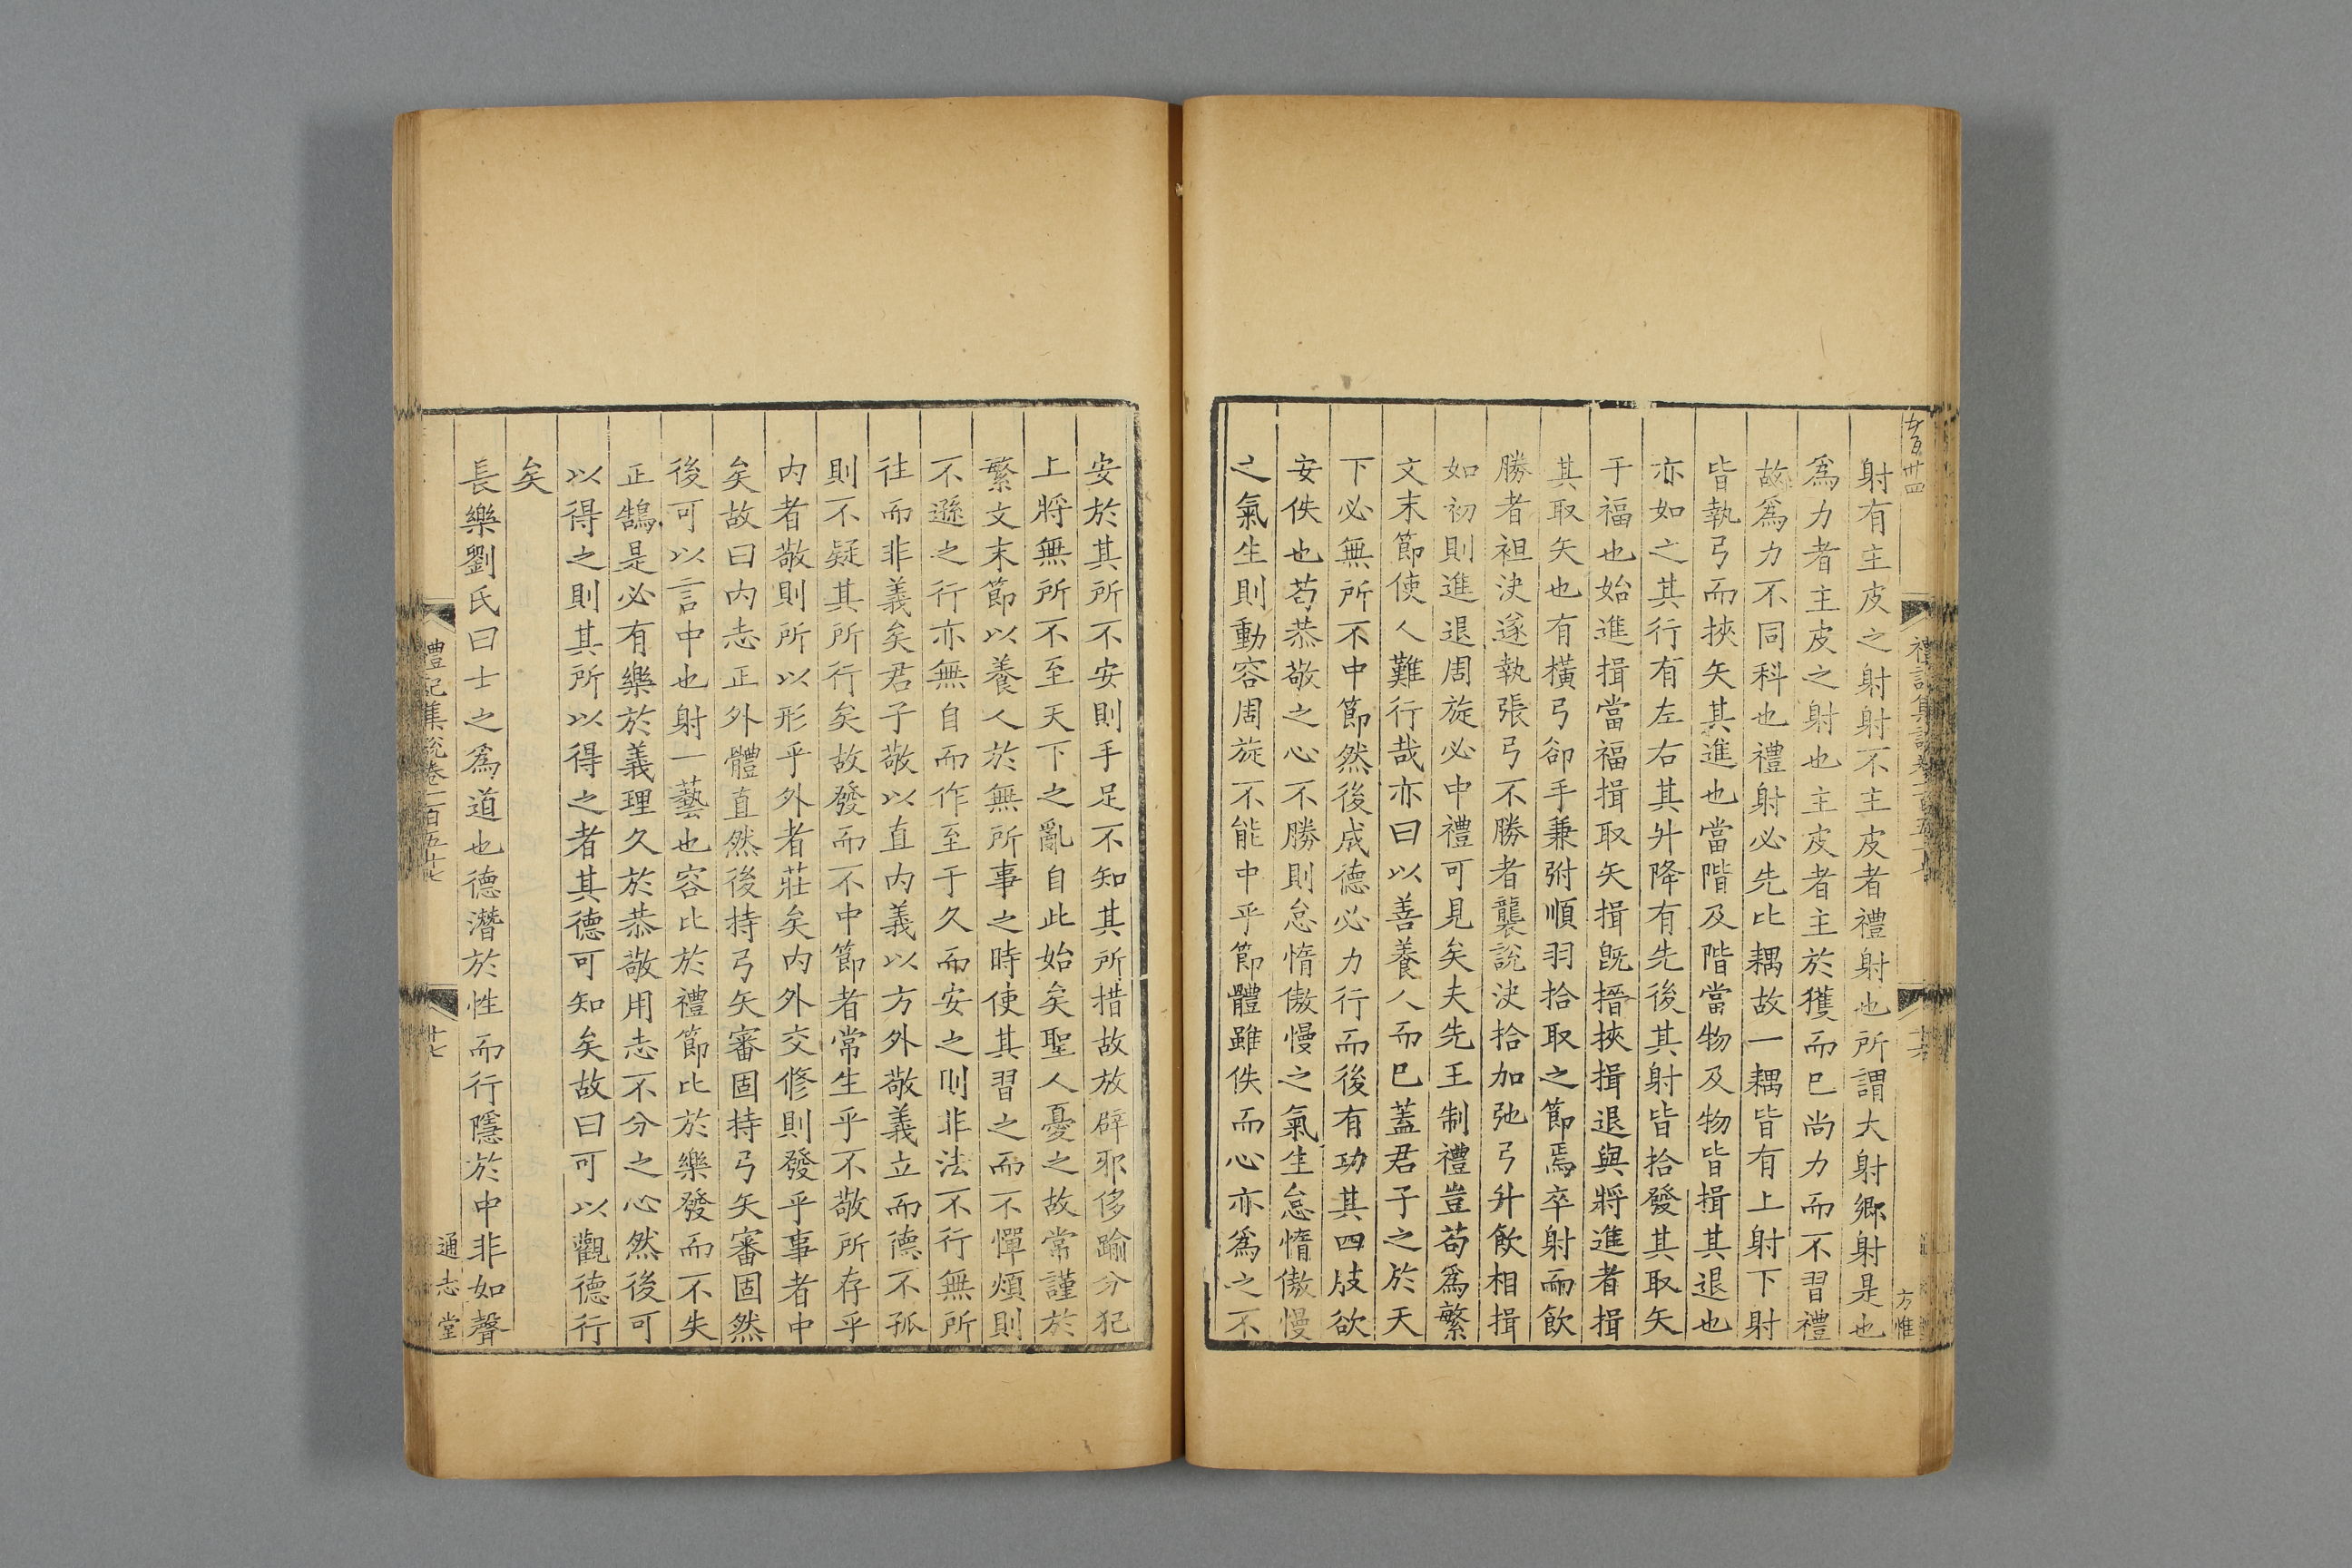 射有主皮之射射不主皮者禮射也所謂大射鄉射是也
爲力者主皮之射也主皮者主於獲而已尚力而不習禮
故爲力不同科也禮射必先比耦故一耦皆有上射下射
皆執弓而挾矢其進也當階及階當物及物皆揖其退也
亦如之其行有左右其升降有先後其射皆拾發其取矢
于福也始進揖當福揖取矢揖旣搢挾揖退與將進者揖
其取矢也有橫弓卻手兼弣順羽拾取之節焉卒射而飮
勝者袒決遂執張弓不勝者襲說決拾加弛弓升飮相揖
如初則進退周旋必中禮可見矣夫先王制禮豈苟爲繁
文末節使人難行哉亦曰以善養人而已蓋君子之於天
下必無所不中節然後成德必力行而後有功其四肢欲
安佚也苟恭敬之心不勝則怠惰傲慢之氣生怠惰傲慢
之氣生則動容周旋不能中乎節體雖佚而心亦爲之不
安於其所不安則手足不知其所措故放辟邪侈踰分犯
上將無所不至天下之亂自此始矣聖人憂之故常謹於
繁文末節以養人於無所事之時使其習之而不憚煩則
不遜之行亦無自而作至于久而安之則非法不行無所
往而非義矣君子敬以直內義以方外敬義立而德不孤
則不疑其所行矣故發而不中節者常生乎不敬所存乎
內者敬則所以形乎外者莊矣內外交修則發乎事者中
矣故曰內志正外體直然後持弓矢審固持弓矢審固然
後可以言中也射一藝也容比於禮節比於樂發而不失
正鵠是必有樂於義理久於恭敬用志不分之心然後可
以得之則其所以得之者其德可知矣故曰可以觀德行
矣
長樂劉氏曰士之爲道也德潛於性而行隱於中非如聲
禮記集說卷一百五十七
十七
通志堂